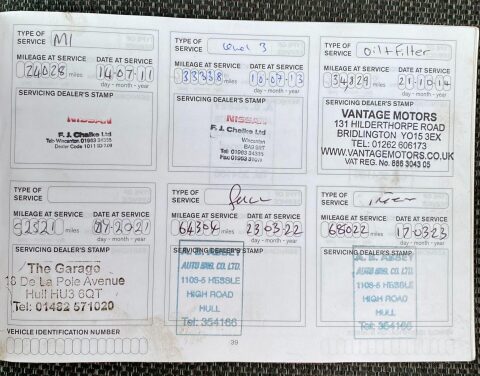 TYPE OF SERVICE M1
MILEAGE AT SERVICE DATE AT SERVICE
24028 miles 14 07 11
day - month - year
SERVICING DEALER'S STAMP
NISSAN
F. J. Chalke Ltd
Wincanton
TYPE OF SERVICE Level 3
MILEAGE AT SERVICE DATE AT SERVICE
33338 miles 10 07 13
day - month - year
SERVICING DEALER'S STAMP
NISSAN
F. J. Chalke Ltd
Wincanton
TYPE OF SERVICE Oil + Filter
MILEAGE AT SERVICE DATE AT SERVICE
34,829 miles 21-10-14
day - month - year
SERVICING DEALER'S STAMP
VANTAGE MOTORS
131 HILDERTHORPE ROAD
BRIDLINGTON YO15 3EX
TEL: 01262 606173
WWW.VANTAGEMOTORS.CO.UK
VAT REG. No.
TYPE OF SERVICE
MILEAGE AT SERVICE DATE AT SERVICE
52521 miles 2021
day - month - year
SERVICING DEALER'S STAMP
The Garage
De La Pole Avenue
Hull HU3 6QT
Tel: 01482 571020
TYPE OF SERVICE
MILEAGE AT SERVICE DATE AT SERVICE
64304 miles 23 03 22
day - month - year
SERVICING DEALER'S STAMP
AUTO ENG. CO. LTD.
1103-5 HESSLE
HIGH ROAD
HULL
Tel: 354166
TYPE OF SERVICE
MILEAGE AT SERVICE DATE AT SERVICE
68022 miles 17 03 23
day - month - year
SERVICING DEALER'S STAMP
AUTO ENG. CO. LTD.
1103-5 HESSLE
HIGH ROAD
HULL
Tel: 354166
VEHICLE IDENTIFICATION NUMBER
39